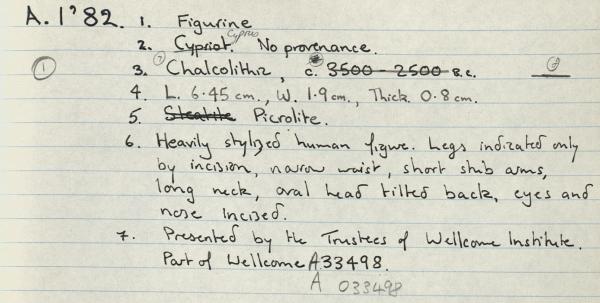 A. 1'82. 1. Figurine
2. Cypriot. Cyprus No provenance.
① ? 3. Chalcolithic, c. 3500 - 2500 B.C.
4. L. 6.45 cm., W. 1.9 cm., Thick. 0.8 cm.
5. Steatite Picrolite.
6. Heavily stylized human figure. Legs indicated only
by incision, narrow waist, short stub arms,
long neck, oval head tilted back, eyes and
nose incised.
7. Presented by the Trustees of Wellcome Institute.
Part of Wellcome A33498.
A 033498